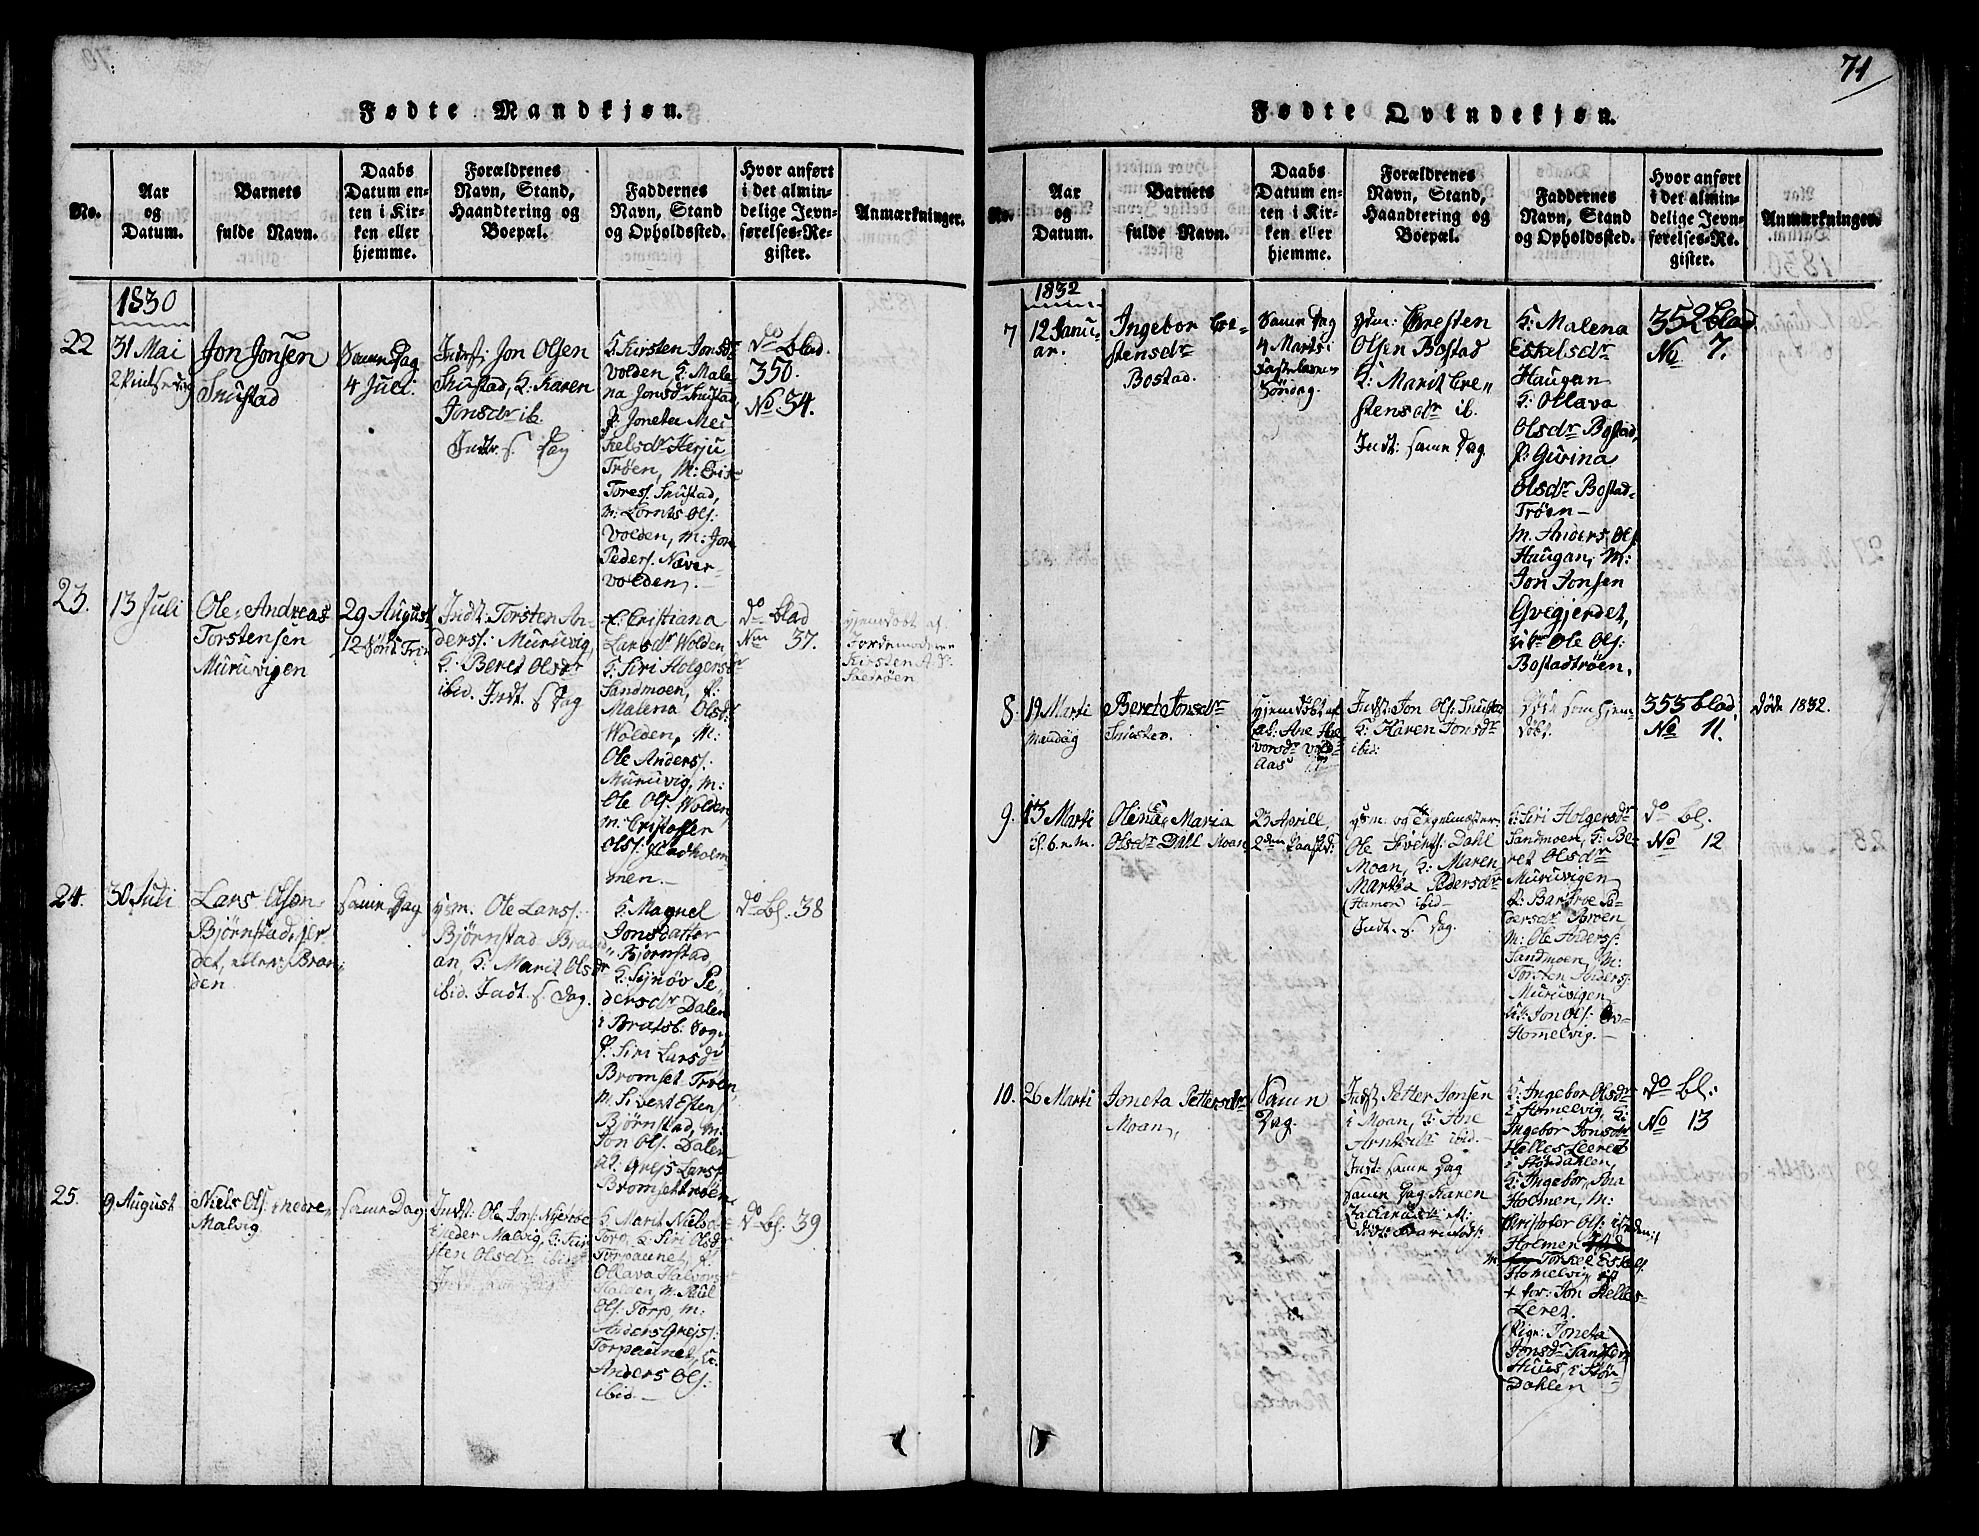 71
Fødte Mandkjøn.
No.
Aar
og
Datum.
Barnets
fulde Navn.
Daabs
Datum en-
ten i Kir-
ken eller
hjemme.
Forældrenes
Navn, Stand,
Haandtering og
Boepæl.
Faddernes
Navn, Stand
og Opholdssted.
Hvor anført
i det almin-
delige Jevn-
førelses-Re-
gister.
Anmærkninger.
1830
22
31 Mai
Jon Jonsen
Snustad
Samme Dag
4 Juli
Jon Olsen
Snustad, K: Karen
Jonsdr ib.
Indtr. s. Dag
K: Kirsten Jonsdr
Volden, K. Male-
na Jonsdr Snustad,
P. Joneta Mec
kelsdr Herju
Trøen, M: Erik
Toress. Snustad,
M: Lornts Ols:
Volden, M: Jon
Peders. Næver-
volden.
Do blad
350.
No 34.
23.
13 Juli
Ole Andreas
Torstensen
Muruvigen
29 August
12 Sønd. Trin
Indt: Torsten An-
derss: Muruvig,
K: Beret Olsdr
ibid. Indt. s. Dag
K: Cristiana
Larsdr Wolden,
K: Siri Holgersdr
Sandmoen, P:
Malena Olsdr
Wolden, M:
Ole Anderss:
Muruvig, M:
Ole Ols: Wolden,
M: Cristoffer
Olss: Hladholm
men.
Do blad
No 37.
Hjemdøbt af
Jordemoderen
Kirsten
Sætrøen
24.
30 Juli
Lars Olsen
Bjørnstadgjer
det, eller Bran
den
Samme Dag
Ole Larss:
Bjørnstad Brand
an, K: Marit Olsdr
ibid. Indt. s. Dag.
K: Magnel
Jonsdatter
Bjørnstad,
K: Synøv Pe
dersdr Dalen
i Bratsb: Sogn,
P. Siri Larsdr
Bromset Trøen,
M. Sivert Esten
Bjørnstad, M:
Jon Ols. Dalen
Grejs Larss:
Bromsettrøen
Do bl. 38
25.
9 August
Niels Ols: nedre
Malvig
Samme Dag
Indst: Ole Jons:
i Neder Malvig, K: Kir
sten Olsdr ibid
Indt. samme Dag
K: Marit Nielsdr
Torp, K: Siri Olsdr
Torpaunet, P:
Ollava Halvorsdr
Halden, M: Poul
Ols: Torp, M:
Anders Grejs:
Torpaunet,
Anders Ols:
ibid.
Do bl: 39
Fødte Qvindekjøn.
No.
Aar
og
Datum.
Barnets
fulde Navn.
Daabs
Datum en-
ten i Kir-
ken eller
hjemme.
Forældrenes
Navn, Stand,
Haandtering og
Boepæl.
Faddernes
Navn, Stand
og Opholdssted.
Hvor anført
i det almin-
delige Jevn-
førelses-Re-
gister.
Anmærkninger.
1832
7
12 Janu-
ar.
Ingebor Cre-
stensdr
Bostad.
Samme Dag
4 Marts i
Fastelavns
Søndag.
Chresten
Olsen Bostad
K: Marit Cre-
stensdr ib.
Indt: samme Dag
K: Malena
Eskelsdr
Haugan
K: Ollava
Olsdr Bostad,
P: Gurina
Olsdr Bostad-
Trøen
M. Anders Ols:
Haugan, M:
Jon Jonsen
Qvegjerdet,
Ole Ols:
Bostadtrøen.
352 blad
No 7.
8.
19 Marti
Mandag
Beret Jonsdr
Snustad.
Hjemdøbt af
Ane Hal
vorsdr Vold
Aas
Indst: Jon Ols: Snustad
K: Karen Jonsdr
ibid:
Døde som hjem-
døbt.
353 blad
No 11.
Døde 1832.
9.
13 Marti
Olina Maria
Olsdr Dahl Moan
23 Aprill,
2den Paaskd:
Hsm. og Teglmæster
Ole Svends: Dahl
Moan, K: Maren
Martha Pedersdr
(Hamon ibid
Indt. s. Dag.
K: Siri Holgersdr
Sandmoen, K: Be-
ret Olsdr
Muruvigen
P. Barbroe Pe-
dersdr Sorren
M: Ole Anderss:
Sandmoen, M:
Torsten Anderss:
Muruvigen
Jon Ols:
Homelvig.
Do bl.
No 12
10.
26 Marti
Joneta Pettersdr
Moan,
Samme
Dag.
Indst: Petter Jonsen
i Moan, K: Ane
Arntsdr ibid.
Indt: samme Dag
samme Dag Karen
Zachariasdr M:
K: Ingebor Olsdr
i Homelvig, K:
Ingebor Jonsdr
Helles Leeret
i Størdahlen,
K: Ingebor, Ina
Holmen, M:
Christofer Ols:
Holmen
M: Torkel Eskels:
Homelvig,
+ for: Jon Helles-
Leret.
(Pige: Joneta
Jonsdr Sandfer
Huus, i Stør
Dahlen
Do bl:
No 13